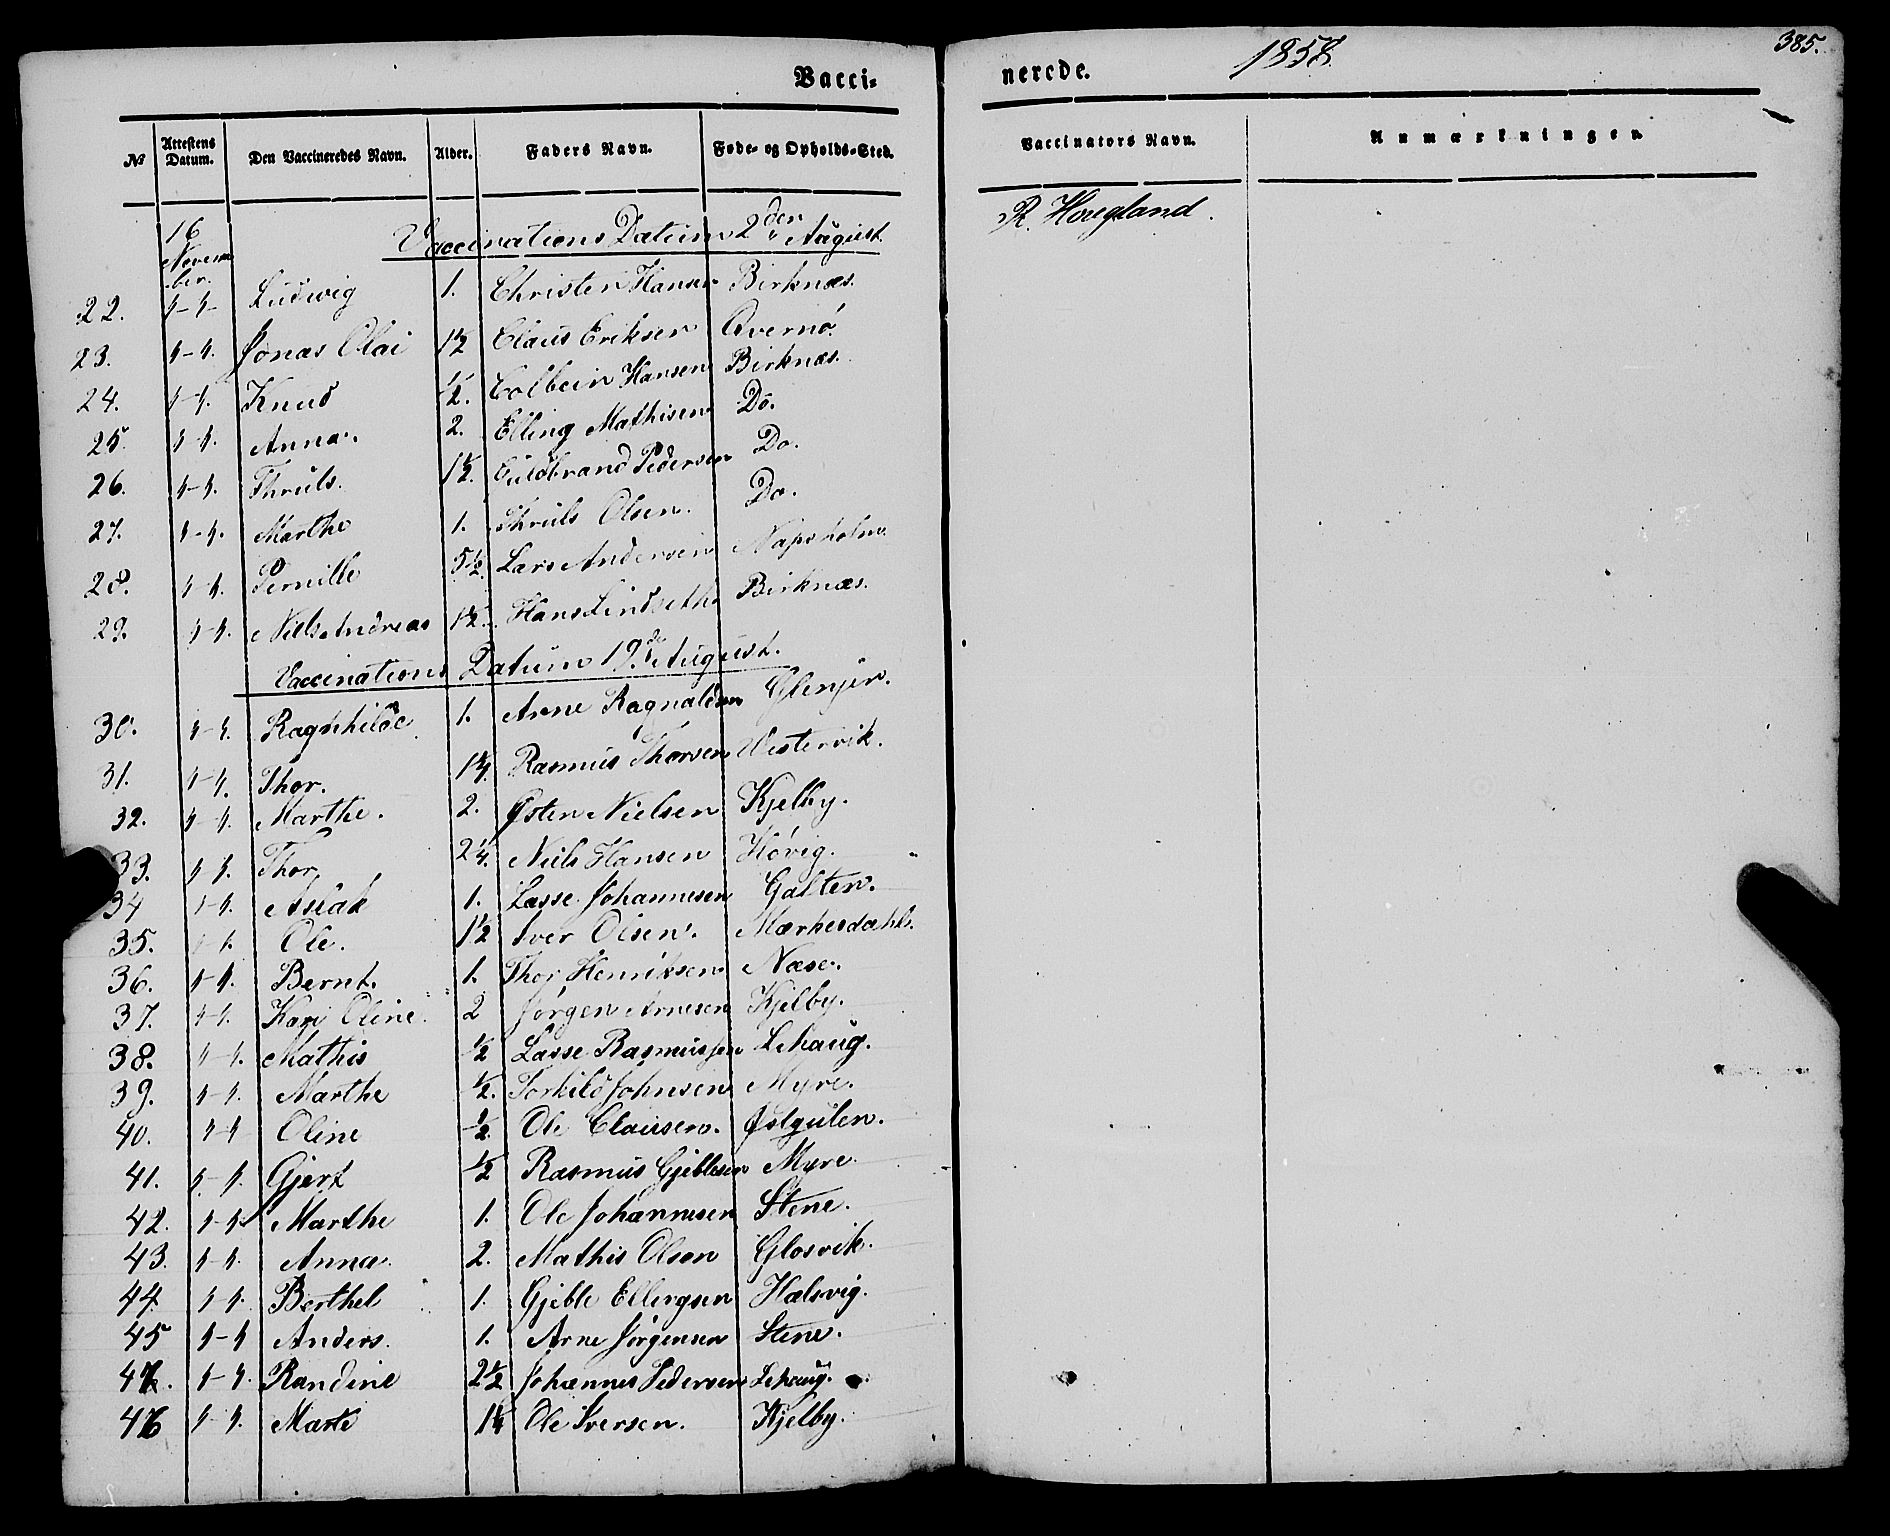 Vacci-
nerede. 1858. 385.
No Attestens Datum. Den Vaccineredes Navn. Alder. Faders Navn. Føde- og Opholds-Sted. Vaccinators Navn. Anmærkninger.
16 Novem ber. Vaccinations Datum 2den August. R. Hougland.
22. "-"- Ludwig 1. Christen Hansen Birknæs.
23. "-". Jonas Olai 1½ Claus Eriksen Qvernö.
24. "-". Knud ½. Colbein Hansen Birknæs.
25. "-". Anna. 2. Elling Mathisen Do.
26. "-". Thruls. 1½. Guldbrand Pedersen Do.
27. "-". Marthe 1. Thruls Olsen. Do.
28. "-". Pernille 5½. Lars Andersen Napsholm.
29. "-". Niels Andreas 1½. Hans Lindseth Birknæs.
Vaccinations Datum 19de August.
30. "-". Ragnhilde 1. Arne Ragnaldsen Glenjen.
31. "-". Thor. 1¼. Rasmus Thorsen Westervik.
32. "-". Marthe. 2. Østen Nielsen Kjelby.
33. "-". Thor, 2¼. Niels Hansen Høvig.
34 "-". Aslak 1. Lasse Johannesen Galten.
35. "-". Ole. 1½ Iver Olsen. Mærkesdahl.
36. "-". Bernt. 1. Thor Henriksen Næse.
37. "-". Kari Oline. 2 Jørgen Arnesen Kjelby.
38. "-". Mathis ½ Lasse Rasmussen Lehaug.
39. "-". Marthe ½. Torkild Johnsen Myre.
40. "-" Oline ½. Ole Clausen. Østgulen.
41. "-". Gjert ½ Rasmus Gjeblesen Myre.
42. "-" Marthe 1. Ole Johannesen Stene.
43. "-". Anna. 2. Mathis Olson Glosvik.
44 "-". Berthel 1. Gjeble Ellergsen Halsvig.
45 "-" Anders. 1. Arne Jørgensen Stene.
4 . "-". Randine 2½ Johannes Pedersen Lehaug.
4 "-". Marte 1¼ Ole Iversen. Kjelby.